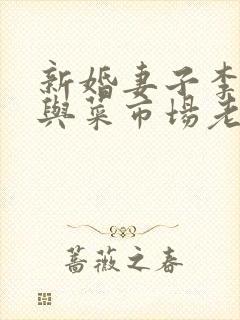 新婚妻子李
與菜市場老
薔薇之春